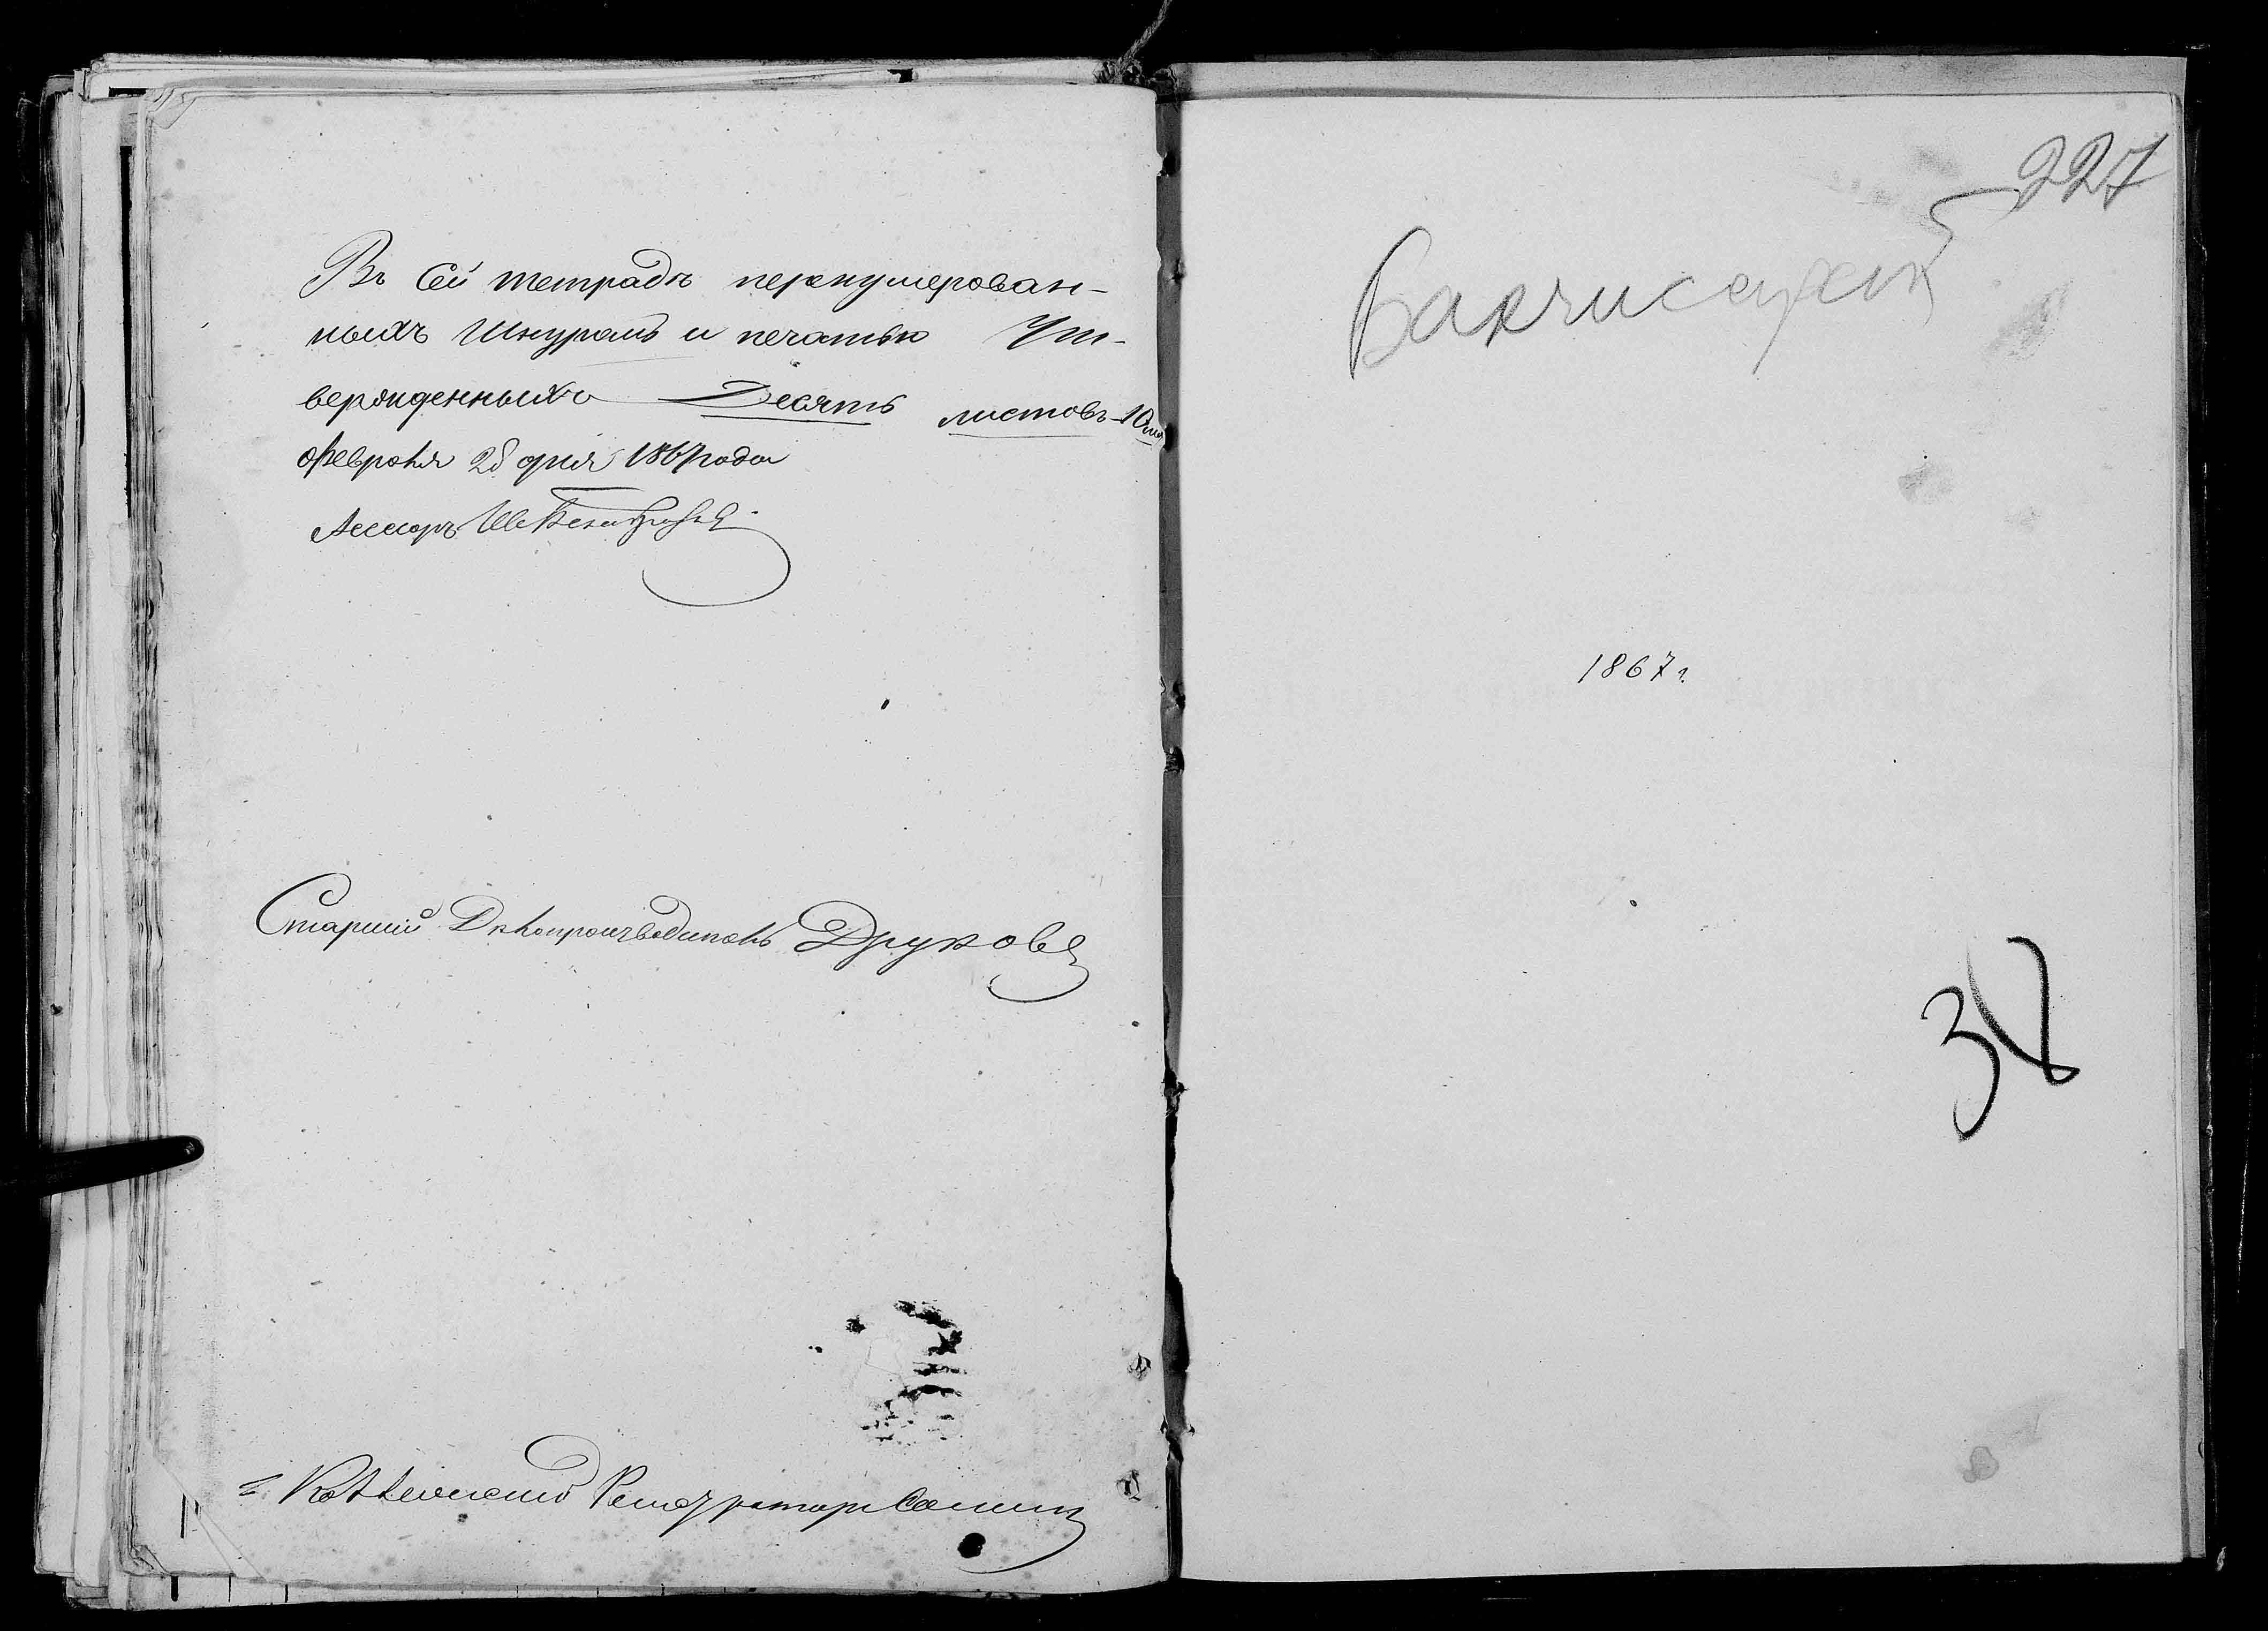 Въ Сей тетрадѣ перенумерован-
ныхъ Шнуромъ и печатью Ут-
вержденныхъ Десять листовъ 10
Февраля 28 дня 1867 года
Асесоръ
Старший Дѣлопроизводитель Друковъ
Коллежский Регистраторъ
227
Бахчисарай
1867 г.
38